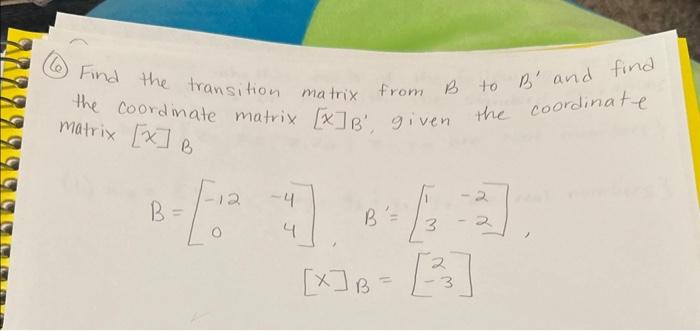 6 Find the transition matrix from B to B' and find
the coordinate matrix [x]B', given the coordinate
matrix [x]B
B = [-12 -4
0 4], B' = [1 -2
3 -2],
[x]B = [2
-3]